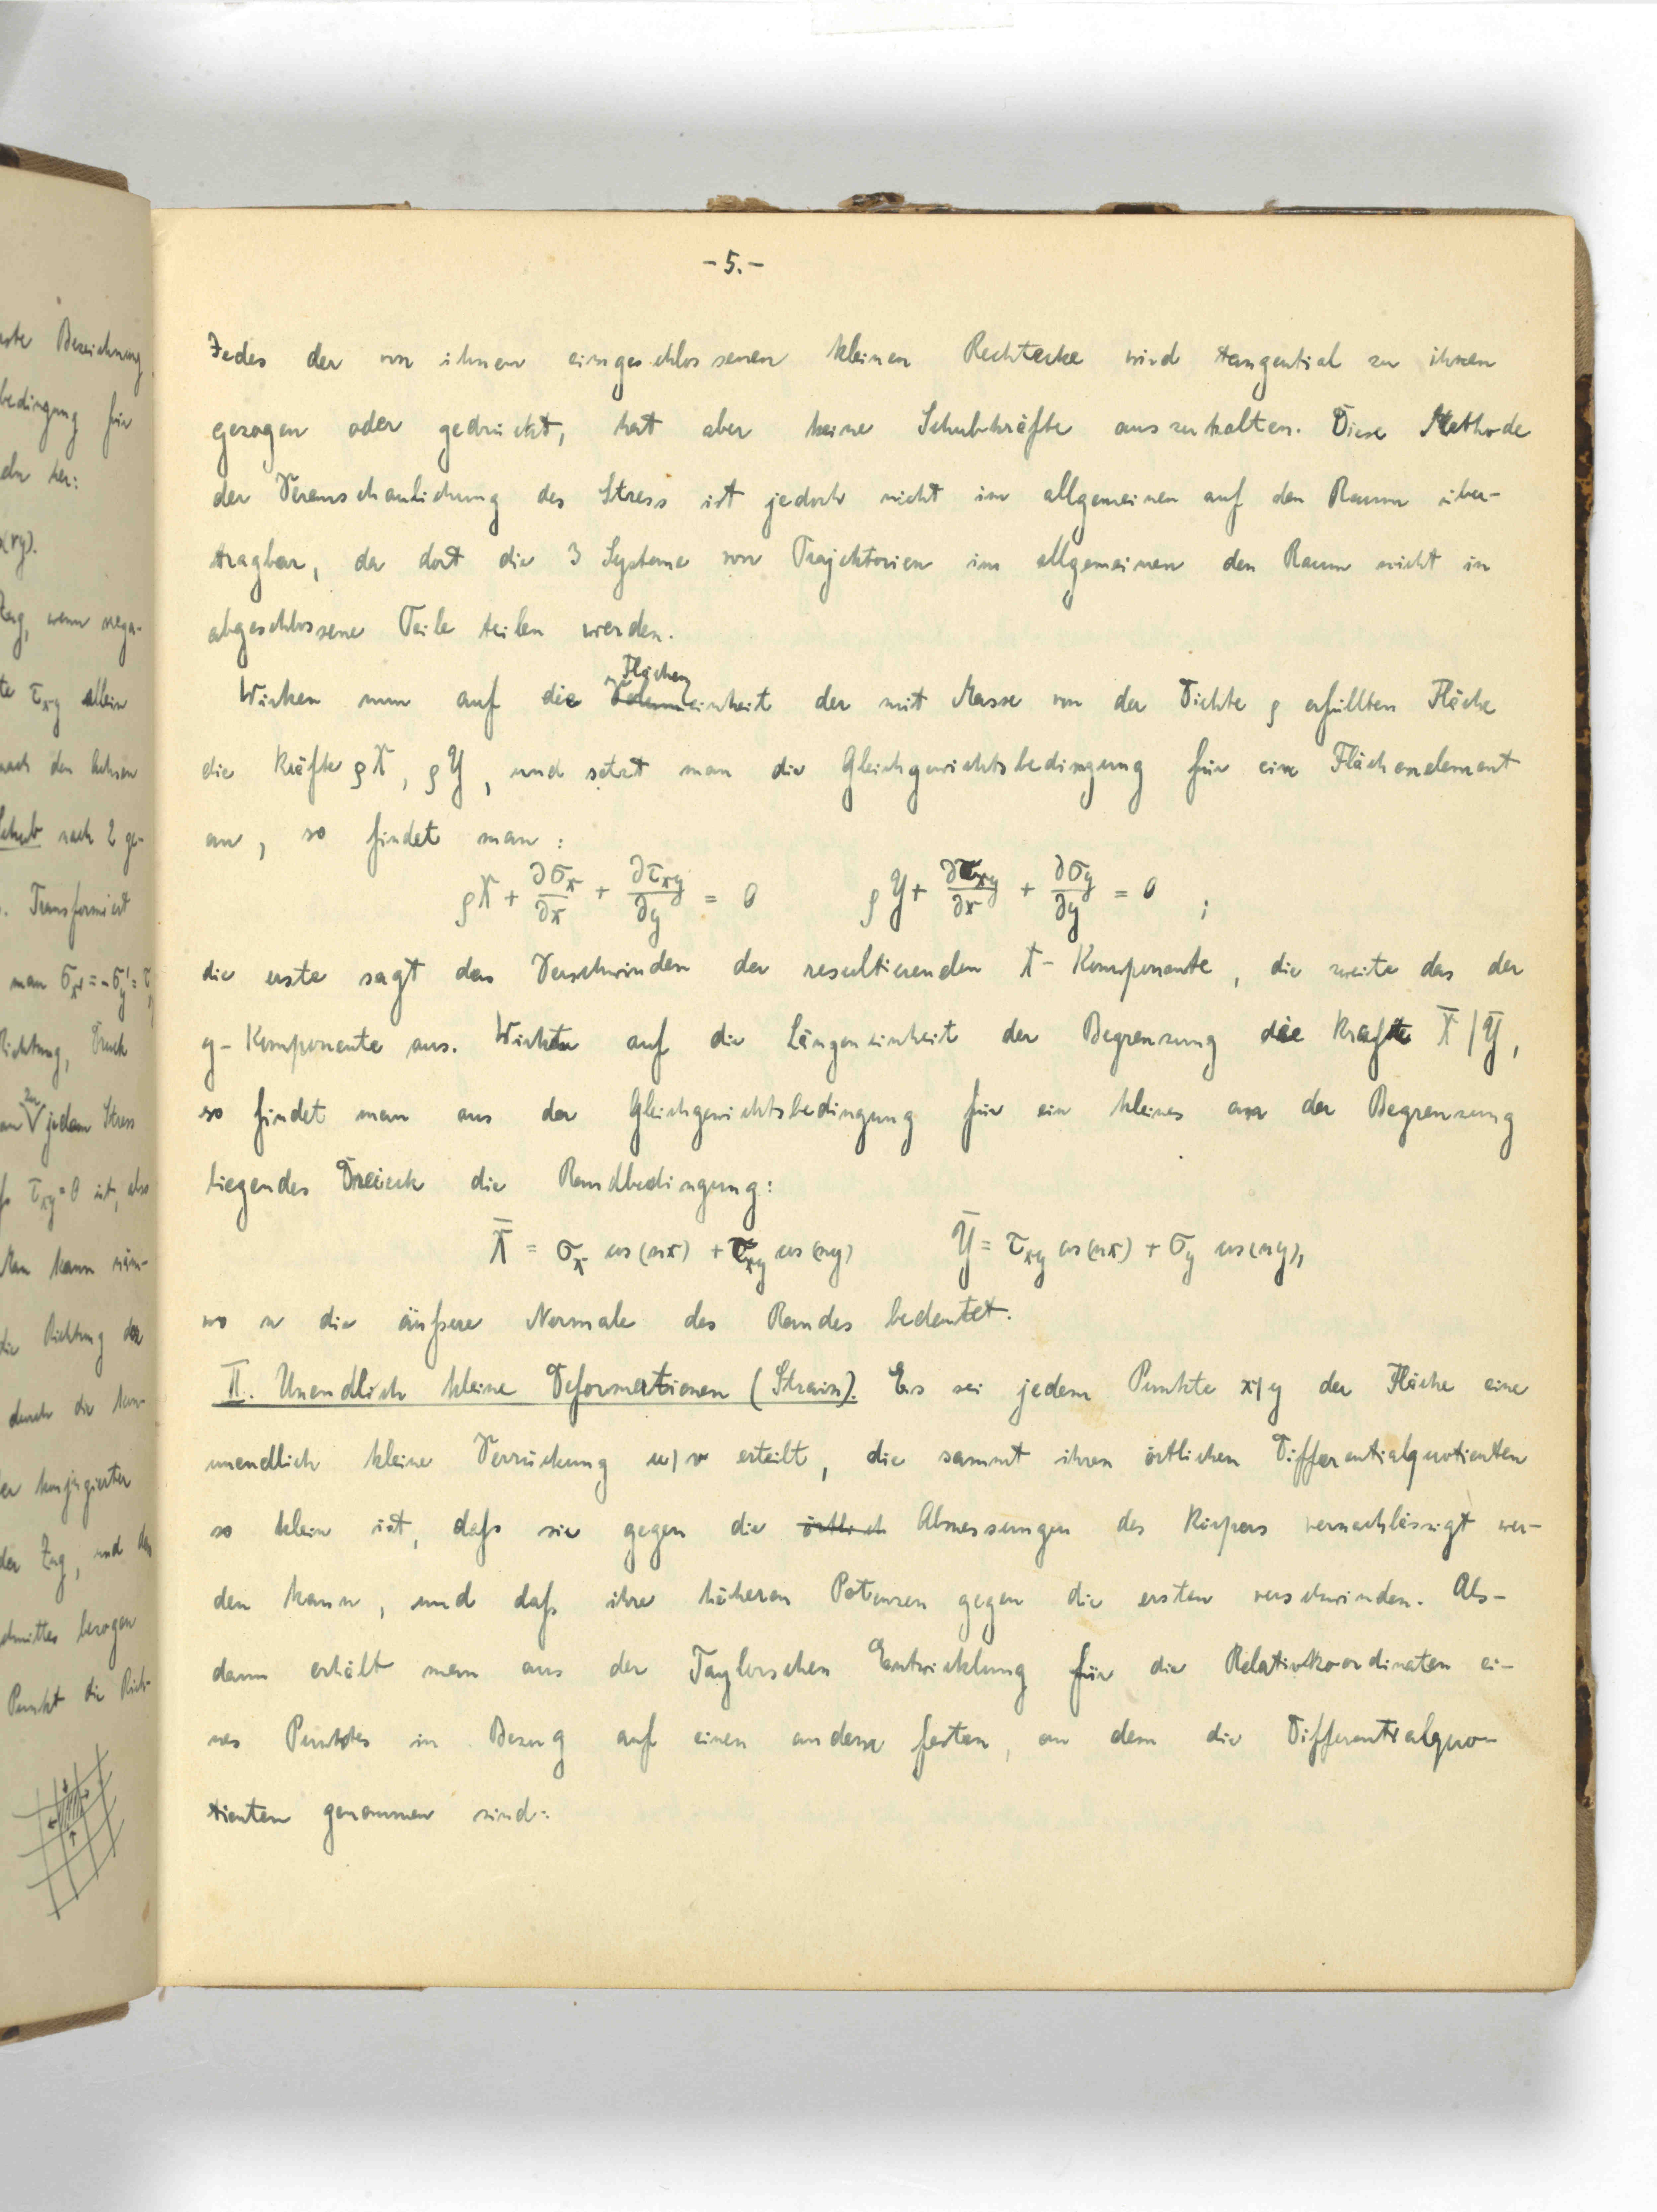 -5.-
Jedes der von ihnen eingeschlossenen kleinen Rechtecke wird tangential zu ihnen
gezogen oder gedrückt, hat aber keine Schubkräfte auszuhalten. Diese Methode
der Veranschaulichung des Stress ist jedoch nicht im allgemeinen auf den Raum über-
tragbar, da dort die 3 Systeme von Trajektorien im allgemeinen den Raum nicht in
abgeschlossene Teile teilen werden.
Flächen
Wirken nun auf die Volumeinheit der mit Masse von der Dichte ρ erfüllten Fläche
die Kräfte ρX, ρY, und setzt man die Gleichgewichtsbedingung für ein Flächenelement
an, so findet man:
ρX + ∂σx/∂x + ∂τxy/∂y = 0 ρY + ∂τxy/∂x + ∂σy/∂y = 0 ;
die erste sagt das Verschwinden der resultierenden X-Komponente, die zweite das der
y-Komponente aus. Wirkten auf die Längeneinheit der Begrenzung die Kräfte X̄/Ȳ,
so findet man aus der Gleichgewichtsbedingung für ein kleines an der Begrenzung
liegendes Dreieck die Randbedingung:
X̄ = σx cos(nx) + τxy cos(ny) Ȳ = τxy cos(nx) + σy cos(ny),
wo n die äußere Normale des Randes bedeutet.
II. Unendlich kleine Deformationen (Strain). Es sei jedem Punkte x/y der Fläche eine
unendlich kleine Verrückung u/v erteilt, die sammt ihren örtlichen Differentialquotienten
so klein ist, daß sie gegen die örtlich Abmessungen des Körpers vernachlässigt wer-
den kann, und daß ihre höheren Potenzen gegen die ersten verschwinden. Als-
dann erhält man aus der Taylorschen Entwicklung für die Relativkoordinaten ei-
nes Punktes in Bezug auf einen andern festen, an dem die Differentialquo-
tienten genommen sind: